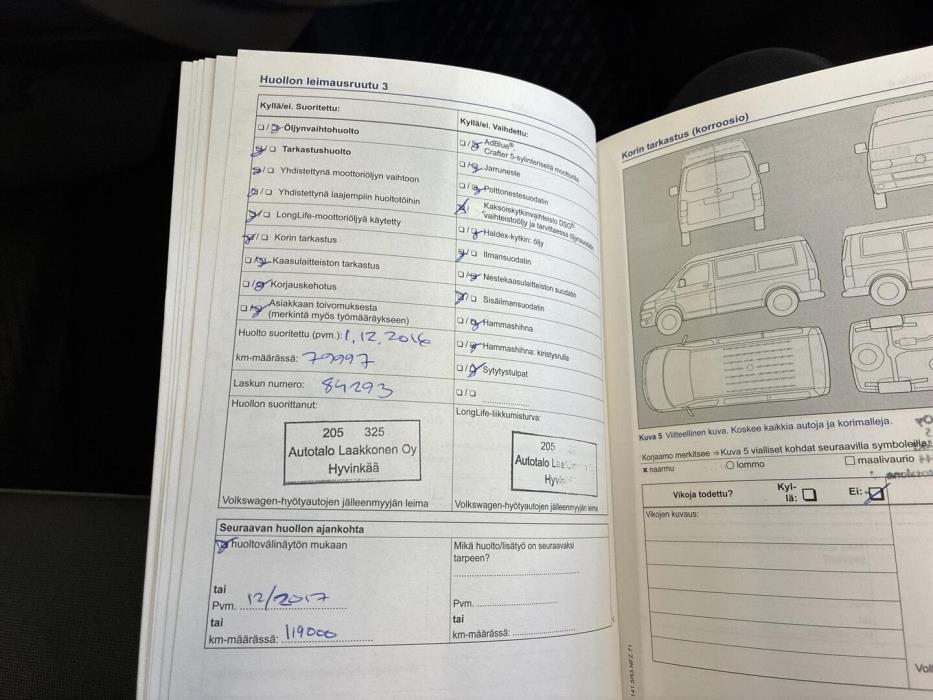 Huollon leimausruutu 3
Kyllä/ei. Suoritettu:
Öljynvaihtohuolto
Tarkastushuolto
Yhdistettynä moottoriöljyn vaihtoon
Yhdistettynä laajempiin huoltotöihin
LongLife-moottoriöljyä käytetty
Korin tarkastus
Kaasulaitteiston tarkastus
Korjauskehotus
Asiakkaan toivomuksesta
(merkintä myös työmääräykseen)
Huolto suoritettu (pvm.): 1.12.2016
km-määrässä: 79997
Laskun numero: 84293
Huollon suorittanut:
205 325
Autotalo Laakkonen Oy
Hyvinkää
Volkswagen-hyötyautojen jälleenmyyjän leima
Kyllä/ei. Vaihdettu:
AdBlue®:
Crafter 5-sylinterisellä moottorilla
Jarruneste
Polttonestesuodatin
Kaksoiskytkinvaihteisto DSG®:
vaihteistoöljy ja tarvittaessa
Haldex-kytkin: öljy
Ilmansuodatin
Nestekaasulaitteiston suodatin
Sisäilmansuodatin
Hammashihna
Hammashihna: kiristysrulla
Sytytystulpat
LongLife-liikkumisturva:
205
Autotalo
Volkswagen-hyötyautojen jälleenmyyjän leima
Seuraavan huollon ajankohta
huoltovälinäytön mukaan
tai
Pvm. 12/2017
tai
km-määrässä: 119000
Mikä huolto/lisätyö on seuraavaksi
tarpeen?
Pvm.
tai
km-määrässä:
141.5R5.NFZ.71
Korin tarkastus (korroosio)
Kuva 5 Viitteellinen kuva. Koskee kaikkia autoja ja korimalleja.
Korjaamo merkitsee ⇒ Kuva 5 vialliset kohdat seuraavilla symboleilla:
x naarmu ○ lommo □ maalivaurio
Vikoja todettu? Kyl-
lä: Ei:
Vikojen kuvaus: